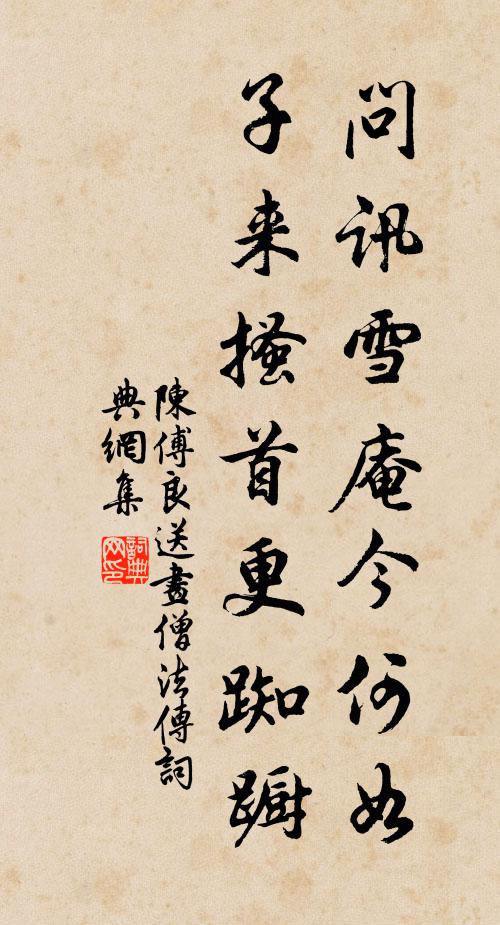 問訊雪庵今何如
子来搔首更踟蹰
陳傅良送畫僧法傳詞
典網集
詞典网印